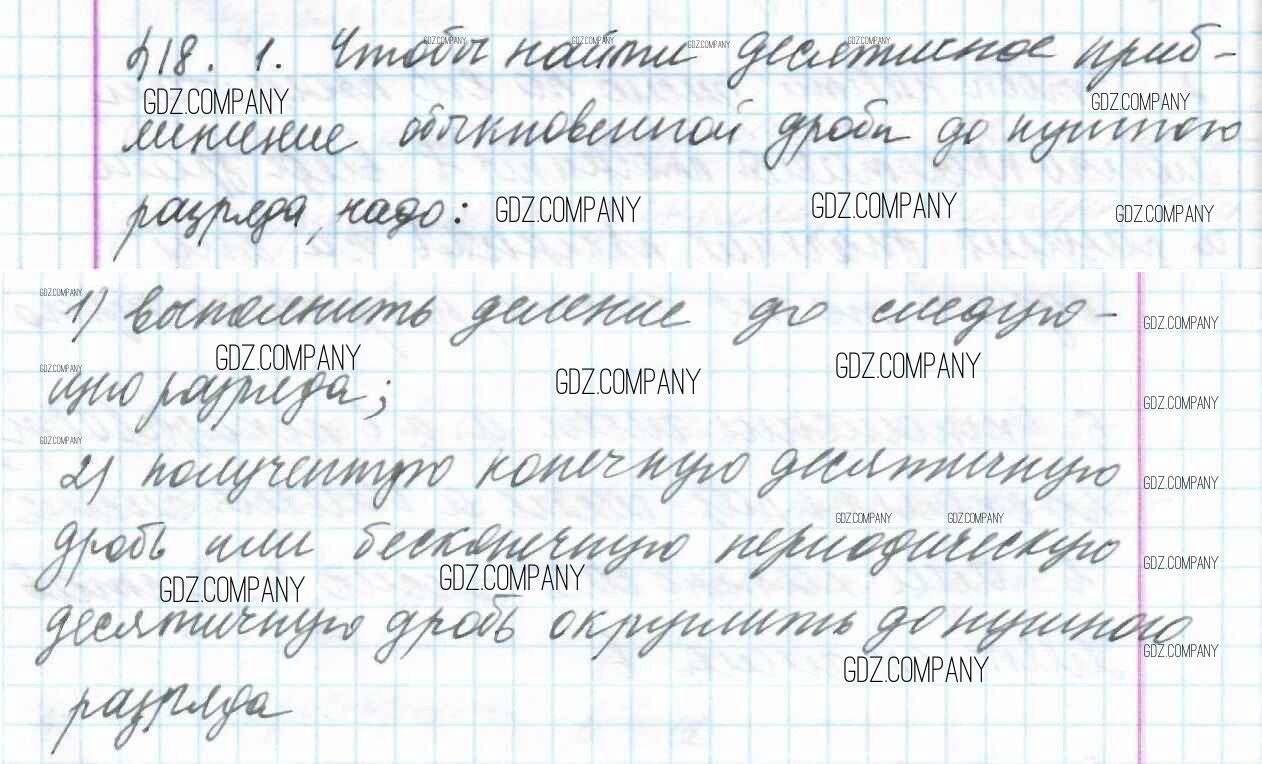 §18. 1. Чтобы найти десятичное приб-
лижение обыкновенной дроби до нужного
разряда, надо:
1) выполнить деление до следую-
щего разряда;
2) полученную конечную десятичную
дробь или бесконечную периодическую
десятичную дробь округлить до нужного
разряда
GDZ.COMPANY